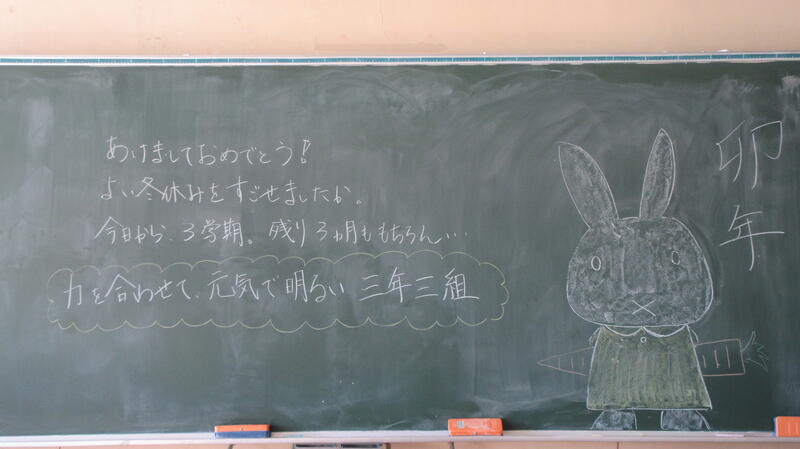 あけましておめでとう!
よい冬休みをすごせましたか。
今日から、3学期。残り3ヵ月ももちろん…
力を合わせて、元気で明るい 三年三組
卯年